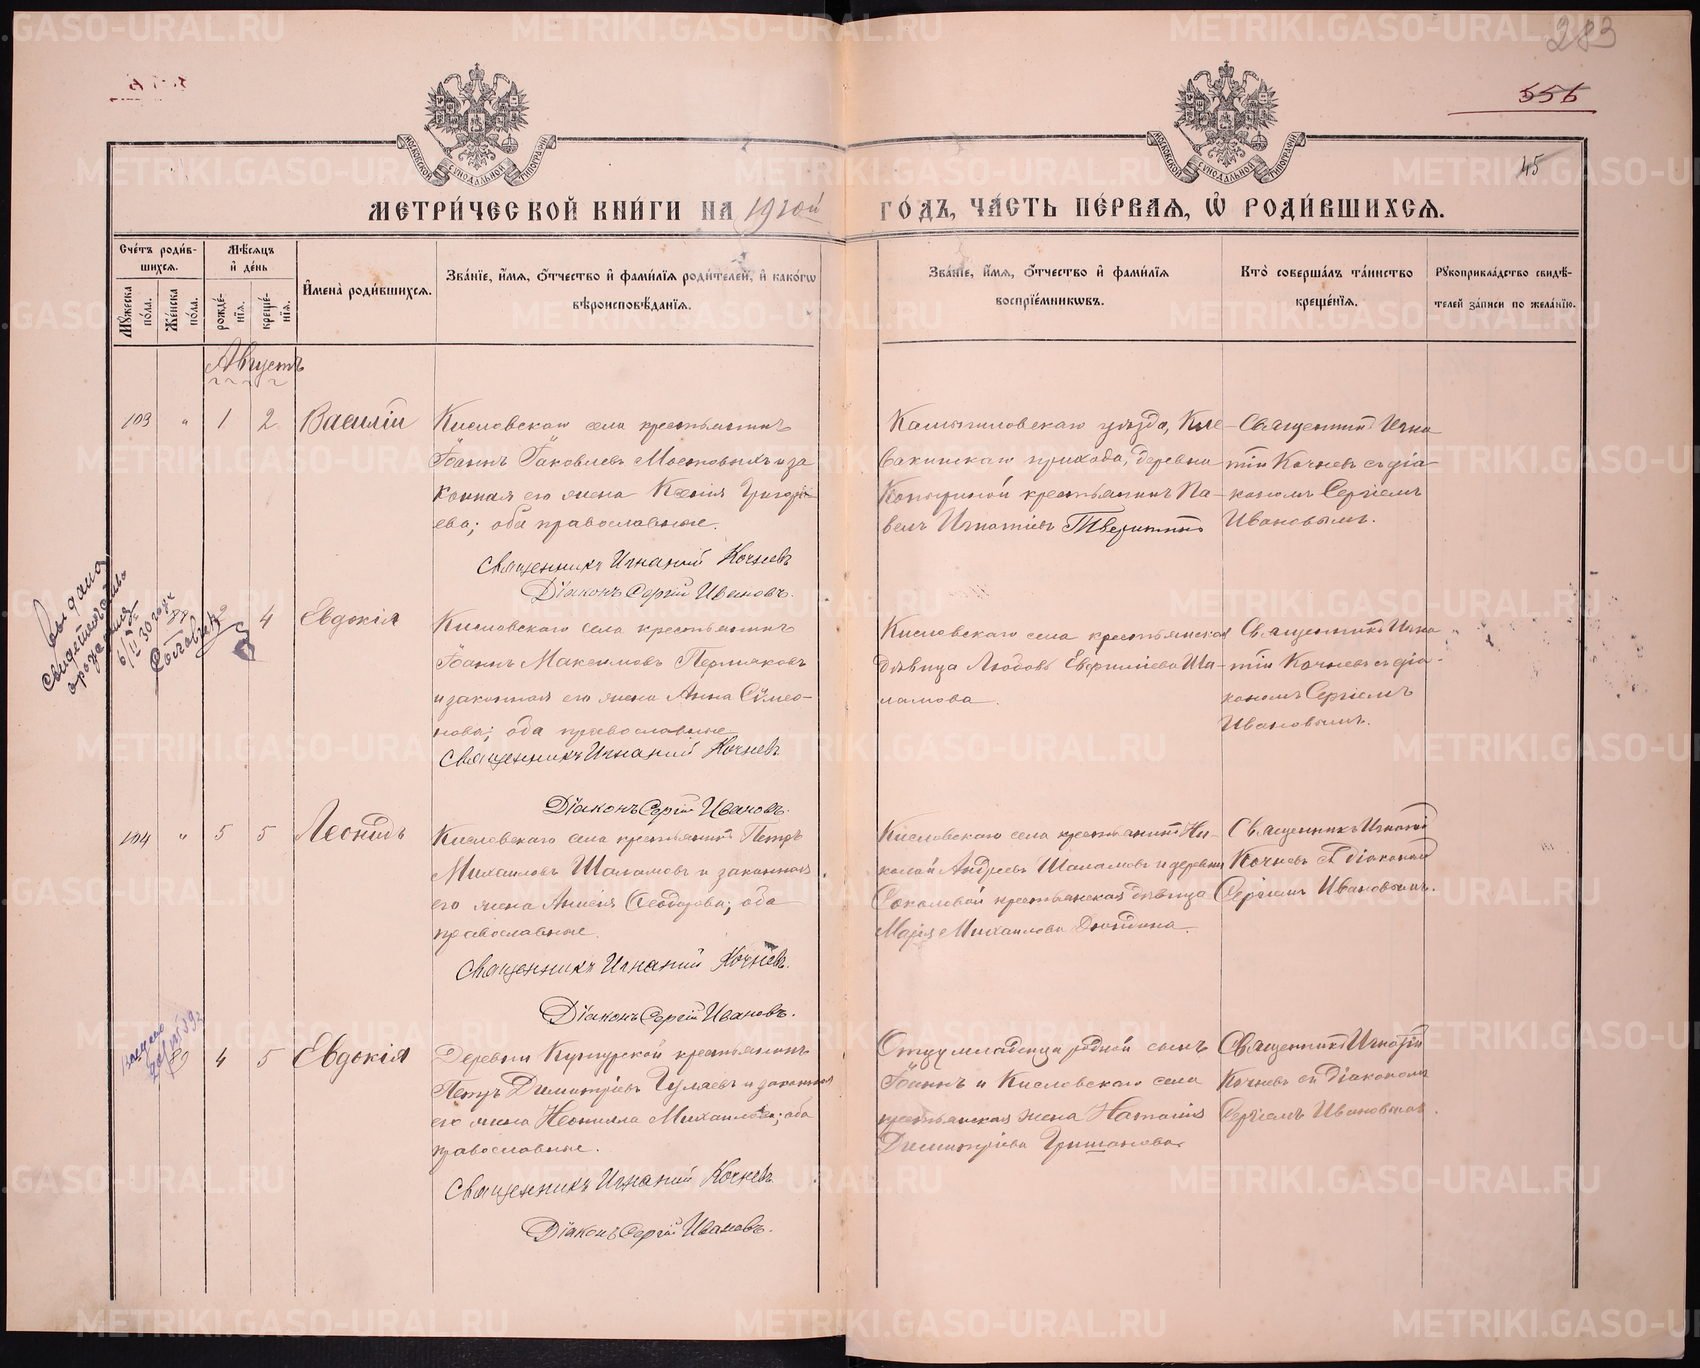 283
556
45
МОСКОВСКОЙ СѴНОДАЛЬНОЙ ТИПОГРАФІИ
МОСКОВСКОЙ СѴНОДАЛЬНОЙ ТИПОГРАФІИ
МЕТРИ́ЧЕСКОЙ КНИ́ГИ НА 1910й ГО́ДЪ, ЧА́СТЬ ПЕ́РВАЯ, Ѽ РОДИ́ВШИХСЯ.
Сче́тъ роди́в-
шихся.
Мꙋ́жеска по́ла.
Же́нска по́ла.
Мѣ́сяцъ
и҆ де́нь
рожде́-
нїя.
креще́-
нїя.
И҆мена̀ роди́вшихся.
Зва́нїе, и҆́мя, ѻ҆́тчество и҆ фами́лїя роди́телей, и҆ како́гѡ
вѣроисповѣ́данїя.
Зва́нїе, и҆́мя, ѻ҆́тчество и҆ фами́лїя
воспрїе́мникѡвъ.
Кто̀ соверша́лъ та́инство
креще́нїя.
Рꙋкоприкла́дство свидѣ́-
телей за́писи по жела́нїю.
Августъ
103 " 1 2 Василій
Кисловскаго села крестьянинъ
Іоаннъ Іаковлевъ Мосновыхъ и за
конная его жена Ксенія Григорі
ева; оба православные.
Священникъ Игнатій Кочневъ
Діаконъ Сергій Ивановъ.
Камышловскаго уѣзда, Кле-
вакинскаго прихода, деревни
крестьянинъ Па-
велъ Игнатіевъ Тверитинъ
Священникъ Игна
тій Кочневъ съ діа
кономъ Сергіемъ
Ивановымъ.
Выдано
свидетельство
о рождении
6/II 30 года
88 2 4 Евдокія
Кисловскаго села крестьянинъ
Іоаннъ Максимовъ Пермяковъ
и законная его жена Анна Сѵмео-
нова; оба православные
Священникъ Игнатій Кочневъ
Діаконъ Сергій Ивановъ.
Кисловскаго села крестьянская
дѣвица Любовь Евфиміева Ша-
ламова.
Священникъ Игна
тій Кочневъ съ діа-
кономъ Сергіемъ
Ивановымъ.
104 " 5 5 Леонидъ
Кисловскаго села крестьянинъ Петръ
Михаиловъ Шаламовъ и законная
его жена Анисія Ѳеодорова; оба
православные.
Священникъ Игнатій Кочневъ.
Діаконъ Сергій Ивановъ.
Кисловскаго села крестьянинъ Ни-
колай Андреевъ Шаламовъ и деревни
Соколовой крестьянская дѣвица
Марія Михаилова Дюстина.
Священникъ Игнатій
Кочневъ съ діакономъ
Сергіемъ Ивановымъ.
89 4 5 Евдокія
Деревни крестьянинъ
Петръ Димитріевъ Гуляевъ и законная
его жена Неонилла Михаилова; оба
православные.
Священникъ Игнатій Кочневъ
Діаконъ Сергій Ивановъ.
Отцу младенца родной сынъ
Іоаннъ и Кисловскаго села
крестьянская жена Наталія
Димитріева Гришанова.
Священникъ Игнатій
Кочневъ съ діакономъ
Сергіемъ Ивановымъ.
METRIKI.GASO-URAL.RU